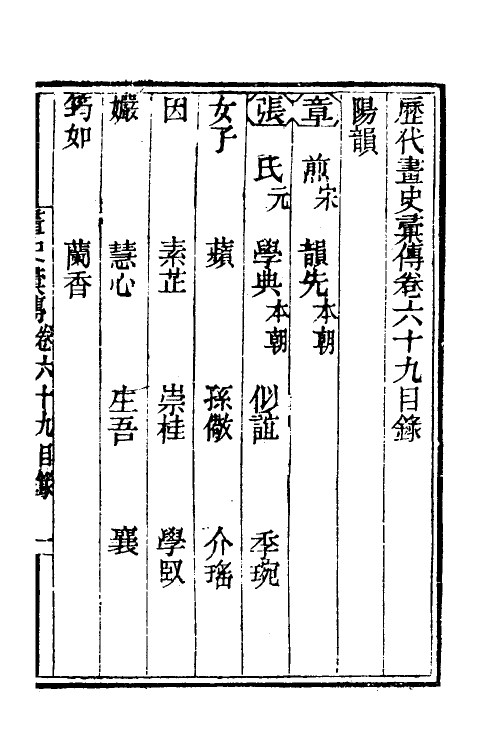 歷代畫史彙傳卷六十九目錄
陽韻
章 煎宋 韻先本朝
張 氏元 學典本朝 似誼 季琬
女子 蘋 孫儆 介瑤
因 素芷 崇桂 學馭
孍 慧心 生吾 襄
筠如 蘭香
畫史彙傳卷六十九目錄 一